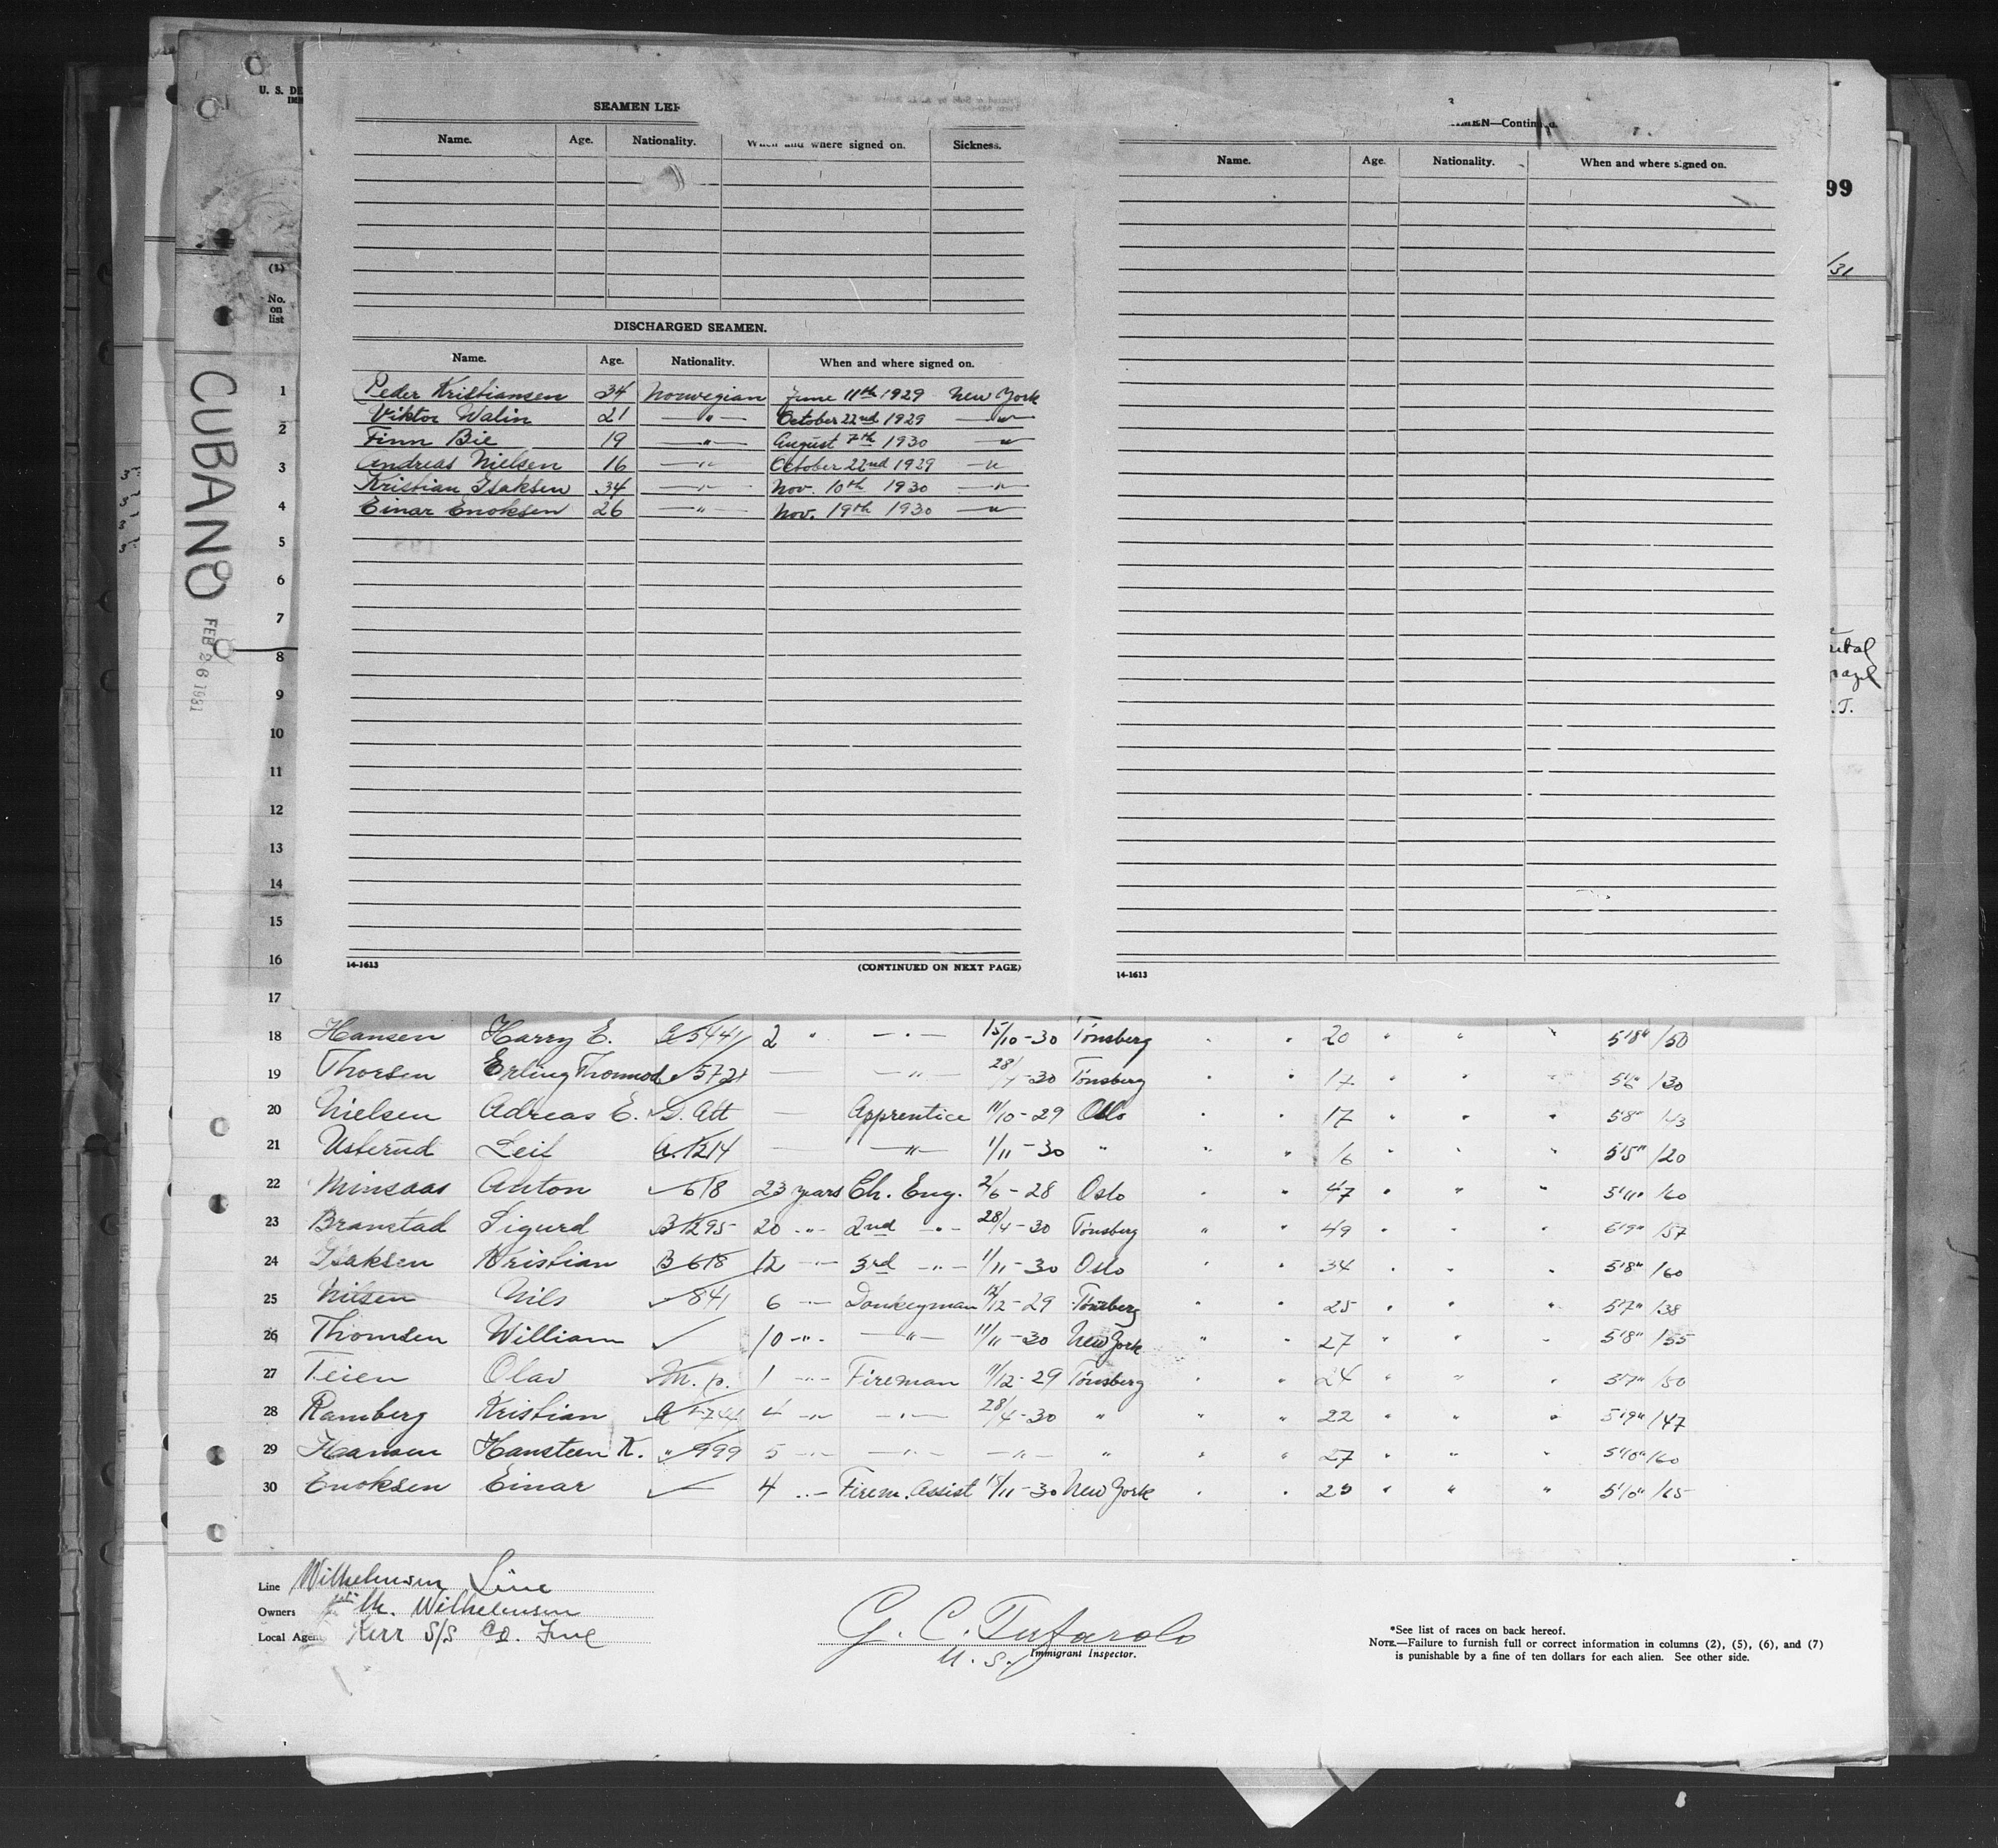 U. S. DE
SEAMEN LEF
Name. Age. Nationality. When and where signed on. Sickness.
DISCHARGED SEAMEN.
Name. Age. Nationality. When and where signed on.
Peder Kristiansen 34 Norwegian June 11th 1929 New York
Viktor Walin 21 —"— October 22nd 1929 —"—
Finn Bie 19 —"— August 7th 1930 —"—
Andreas Nielsen 16 —"— October 22nd 1929 —"—
Kristian Isaksen 34 —"— Nov. 10th 1930 —"—
Einar Enoksen 26 —"— Nov. 19th 1930 —"—
14-1613 (CONTINUED ON NEXT PAGE)
MEN—Continued.
Name. Age. Nationality. When and where signed on.
14-1613
99
/31
CUBANO
FEB 26 1931
(1)
No.
on
list
1
2
3
4
5
6
7
8
9
10
11
12
13
14
15
16
17
18 Hansen Harry E. 5441 2 " —"— 15/10-30 Tönsberg " " 20 " " " 5'8" 150
19 Thorsen Erling Thormod 572 — —"— 28/4-30 Tönsberg " " 17 " " " 5'6" 130
20 Nielsen Adreas E. S. Att — Apprentice 11/10-29 Oslo " " 17 " " " 5'8" 143
21 Usterud Leif a. 1214 — —"— 1/11-30 " " " 16 " " " 5'5" 120
22 Minsaas Anton 618 23 years Ch. Eng. 2/6-28 Oslo " " 47 " " " 5'11" 160
23 Branstad Sigurd B 1295 20 -"- 2nd -"- 28/4-30 Tönsberg " " 49 " " " 5'9" 157
24 Isaksen Kristian B 618 12 -"- 3rd -"- 1/11-30 Oslo " " 34 " " " 5'8" 160
25 Nilsen Nils 841 6 -"- Donkeyman 12/12-29 Tönsberg " " 25 " " " 5'7" 138
26 Thomsen William 10 -"- —"— 11/11-30 New York " " 27 " " " 5'8" 155
27 Teien Olav M. p. 1 -"- Fireman 11/12-29 Tönsberg " " 24 " " " 5'7" 150
28 Ramberg Kristian a 744 4 -"- —"— 28/4-30 " " " 22 " " " 5'9" 147
29 Hansen Hansteen K. " 999 5 -"- —"— —"— " " " 27 " " " 5'10" 160
30 Enoksen Einar 4 -"- Firem. Assist 18/11-30 New York " " 25 " " " 5'10" 165
Line Wilhelmsen Line
Owners Wilh. Wilhelmsen
Local Agents Kerr S/S Co. Inc
G. C. Tufarolo
U. S. Immigrant Inspector.
*See list of races on back hereof.
NOTE.—Failure to furnish full or correct information in columns (2), (5), (6), and (7)
is punishable by a fine of ten dollars for each alien. See other side.